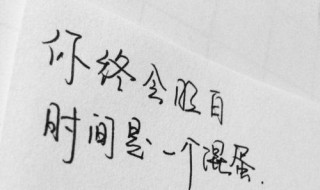 你终会明白
时间是一个混蛋.